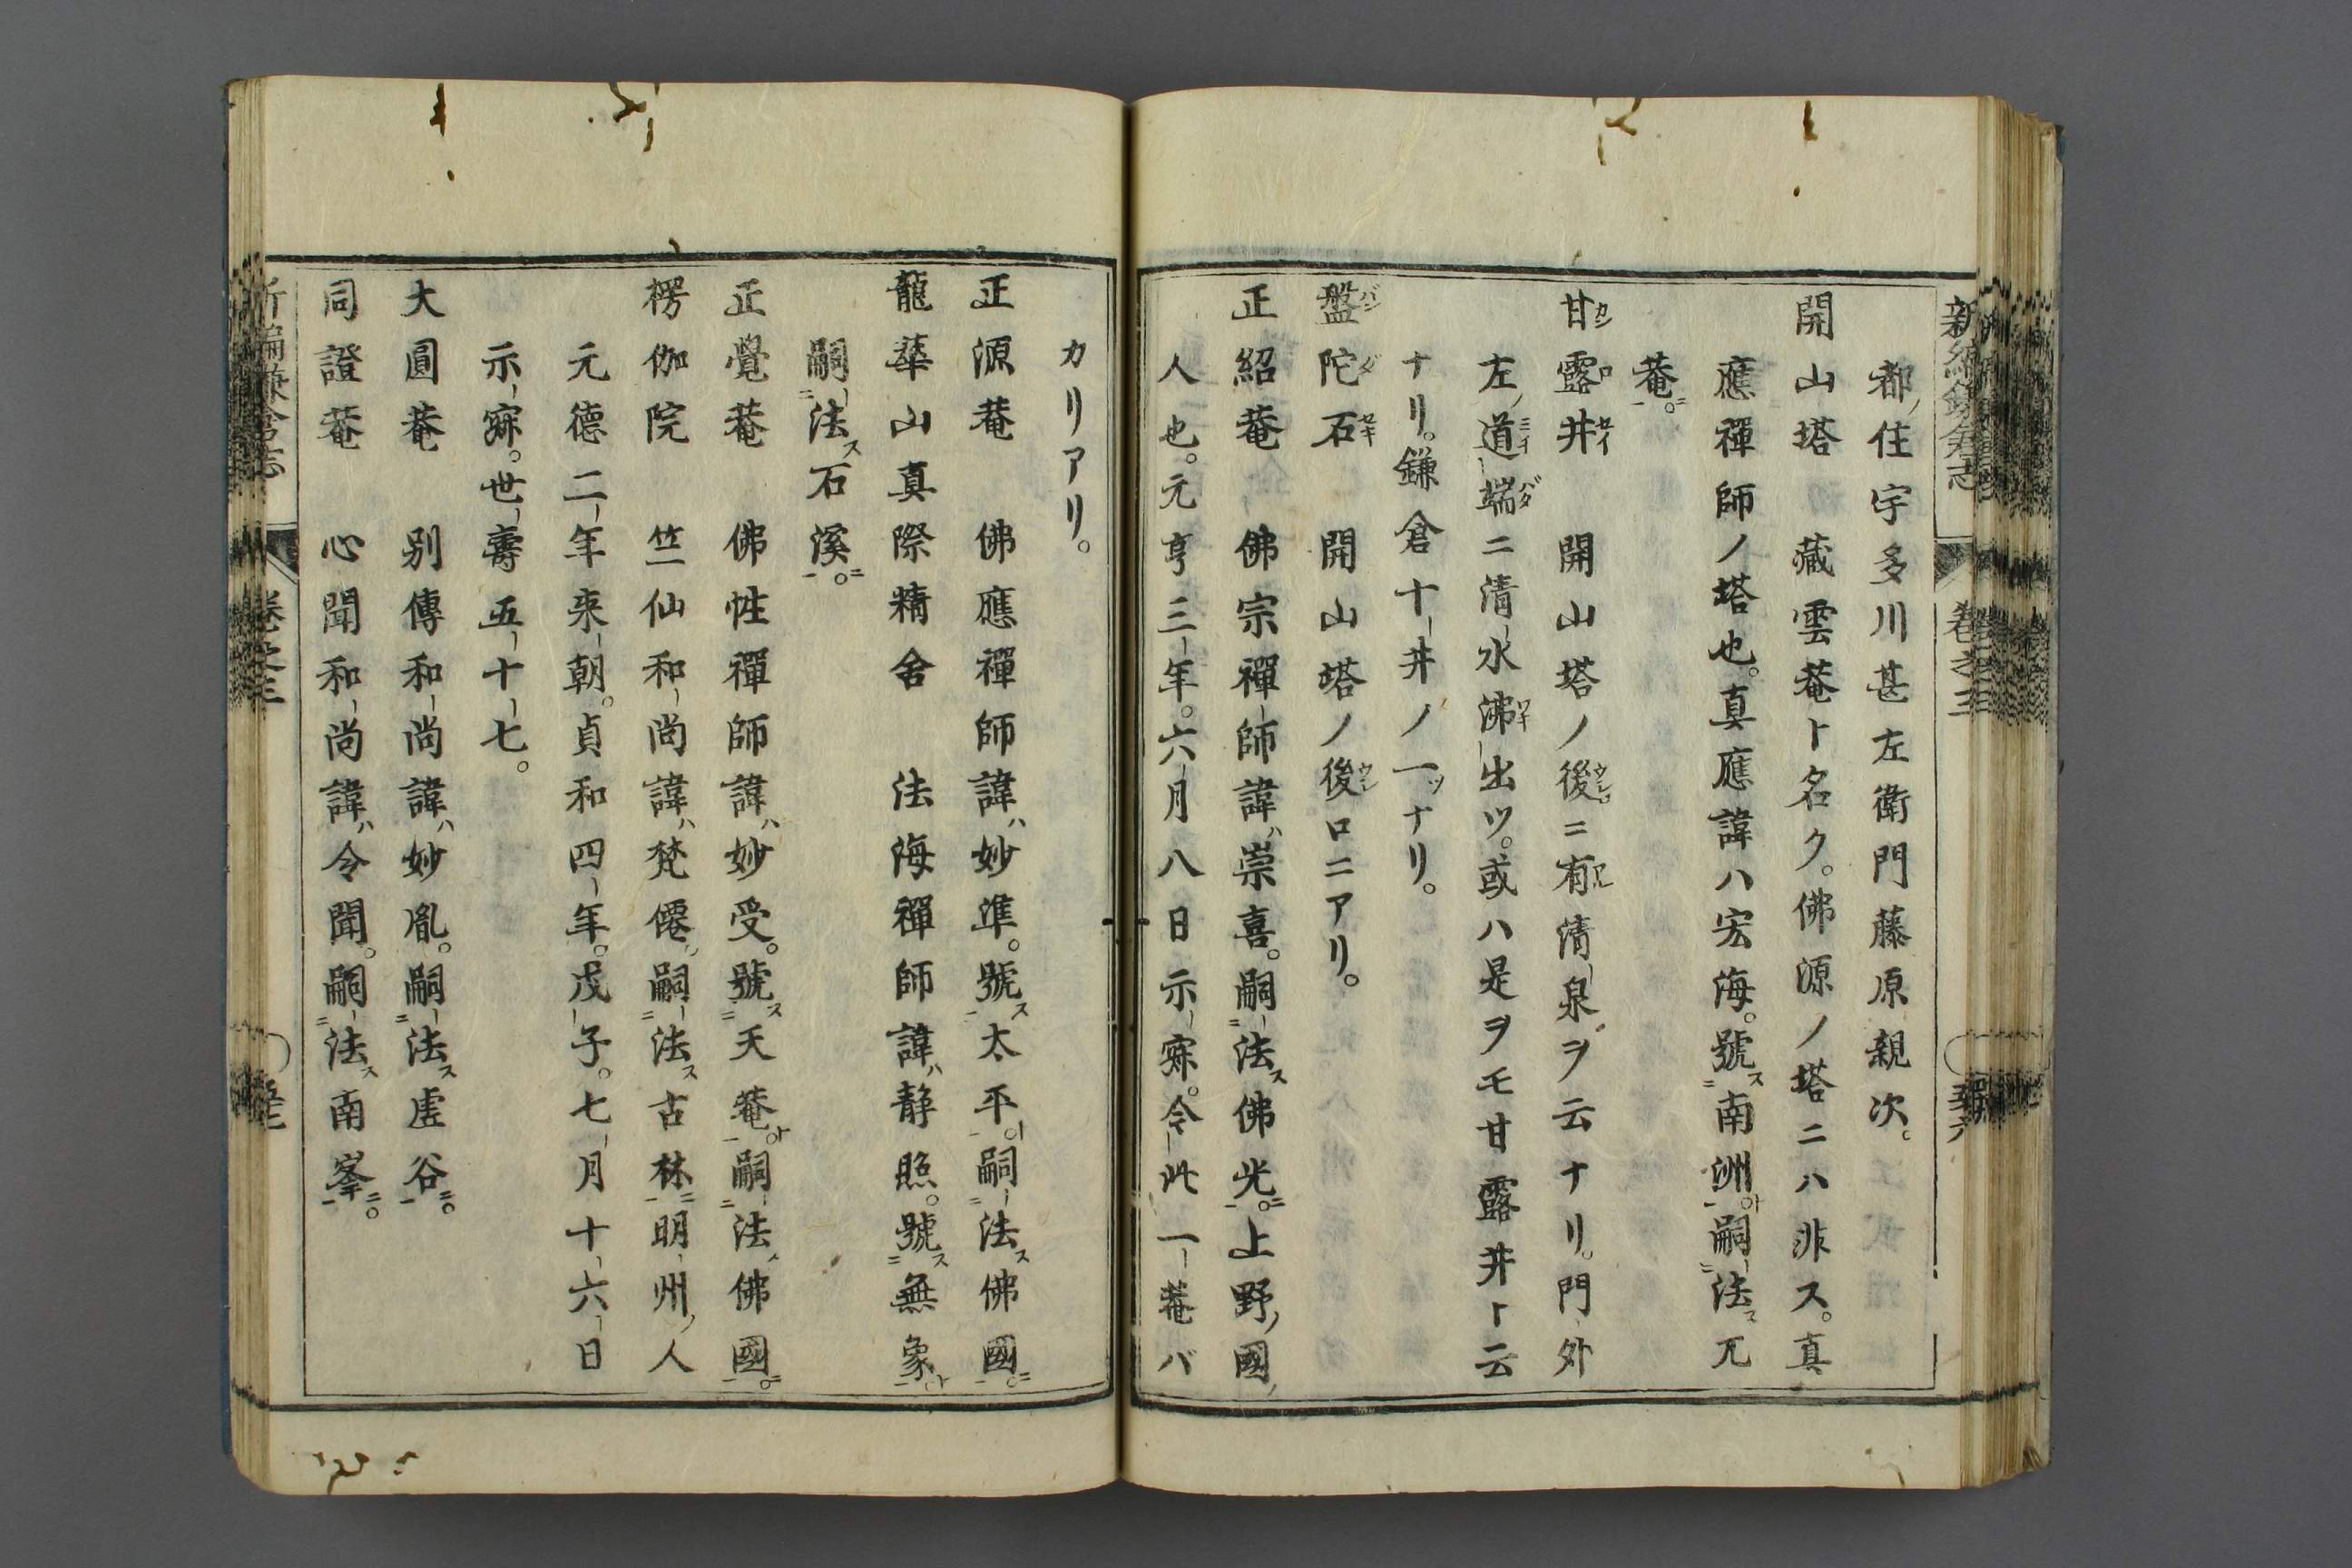 新編鎌倉志 卷之三 五十六
都ノ住宇多川甚左衛門藤原親次。
開山塔 藏雲菴ト名ク。佛源ノ塔ニハ非ス。真
應禪師ノ塔也。真應諱ハ宏海。號ス南洲ト。嗣法ス兀
菴ニ。
甘露井 開山塔ノ後ニ有清泉ヲ云ナリ。門外
左ノ道端ニ清水沸出ツ。或ハ是ヲモ甘露井ト云
ナリ。鎌倉十井ノ一ツナリ。
盤陀石 開山塔ノ後ロニアリ。
正紹菴 佛宗禪師諱ハ崇喜。嗣法ス佛光ニ。上野ノ國ノ
人也。元亨三年。六月八日示寂。今此一菴バ
カリアリ。
正源菴 佛應禪師諱ハ妙準。號ス太平ト。嗣法ス佛國ニ。
龍華山真際精舍 法海禪師諱ハ静照。號ス無象ト。
嗣法ス石溪ニ。
正覺菴 佛性禪師諱ハ妙受。號ス天菴ト。嗣法ス佛國ニ。
楞伽院 竺仙和尚諱ハ梵僊。嗣法ス古林ニ。明州ノ人
元德二年来朝。貞和四年。戊子。七月十六日
示寂。世壽五十七。
大圓菴 別傳和尚諱ハ妙胤。嗣法ス虚谷ニ。
同證菴 心聞和尚諱ハ令聞。嗣法ス南峯ニ。
新編鎌倉志 卷之三 五十七